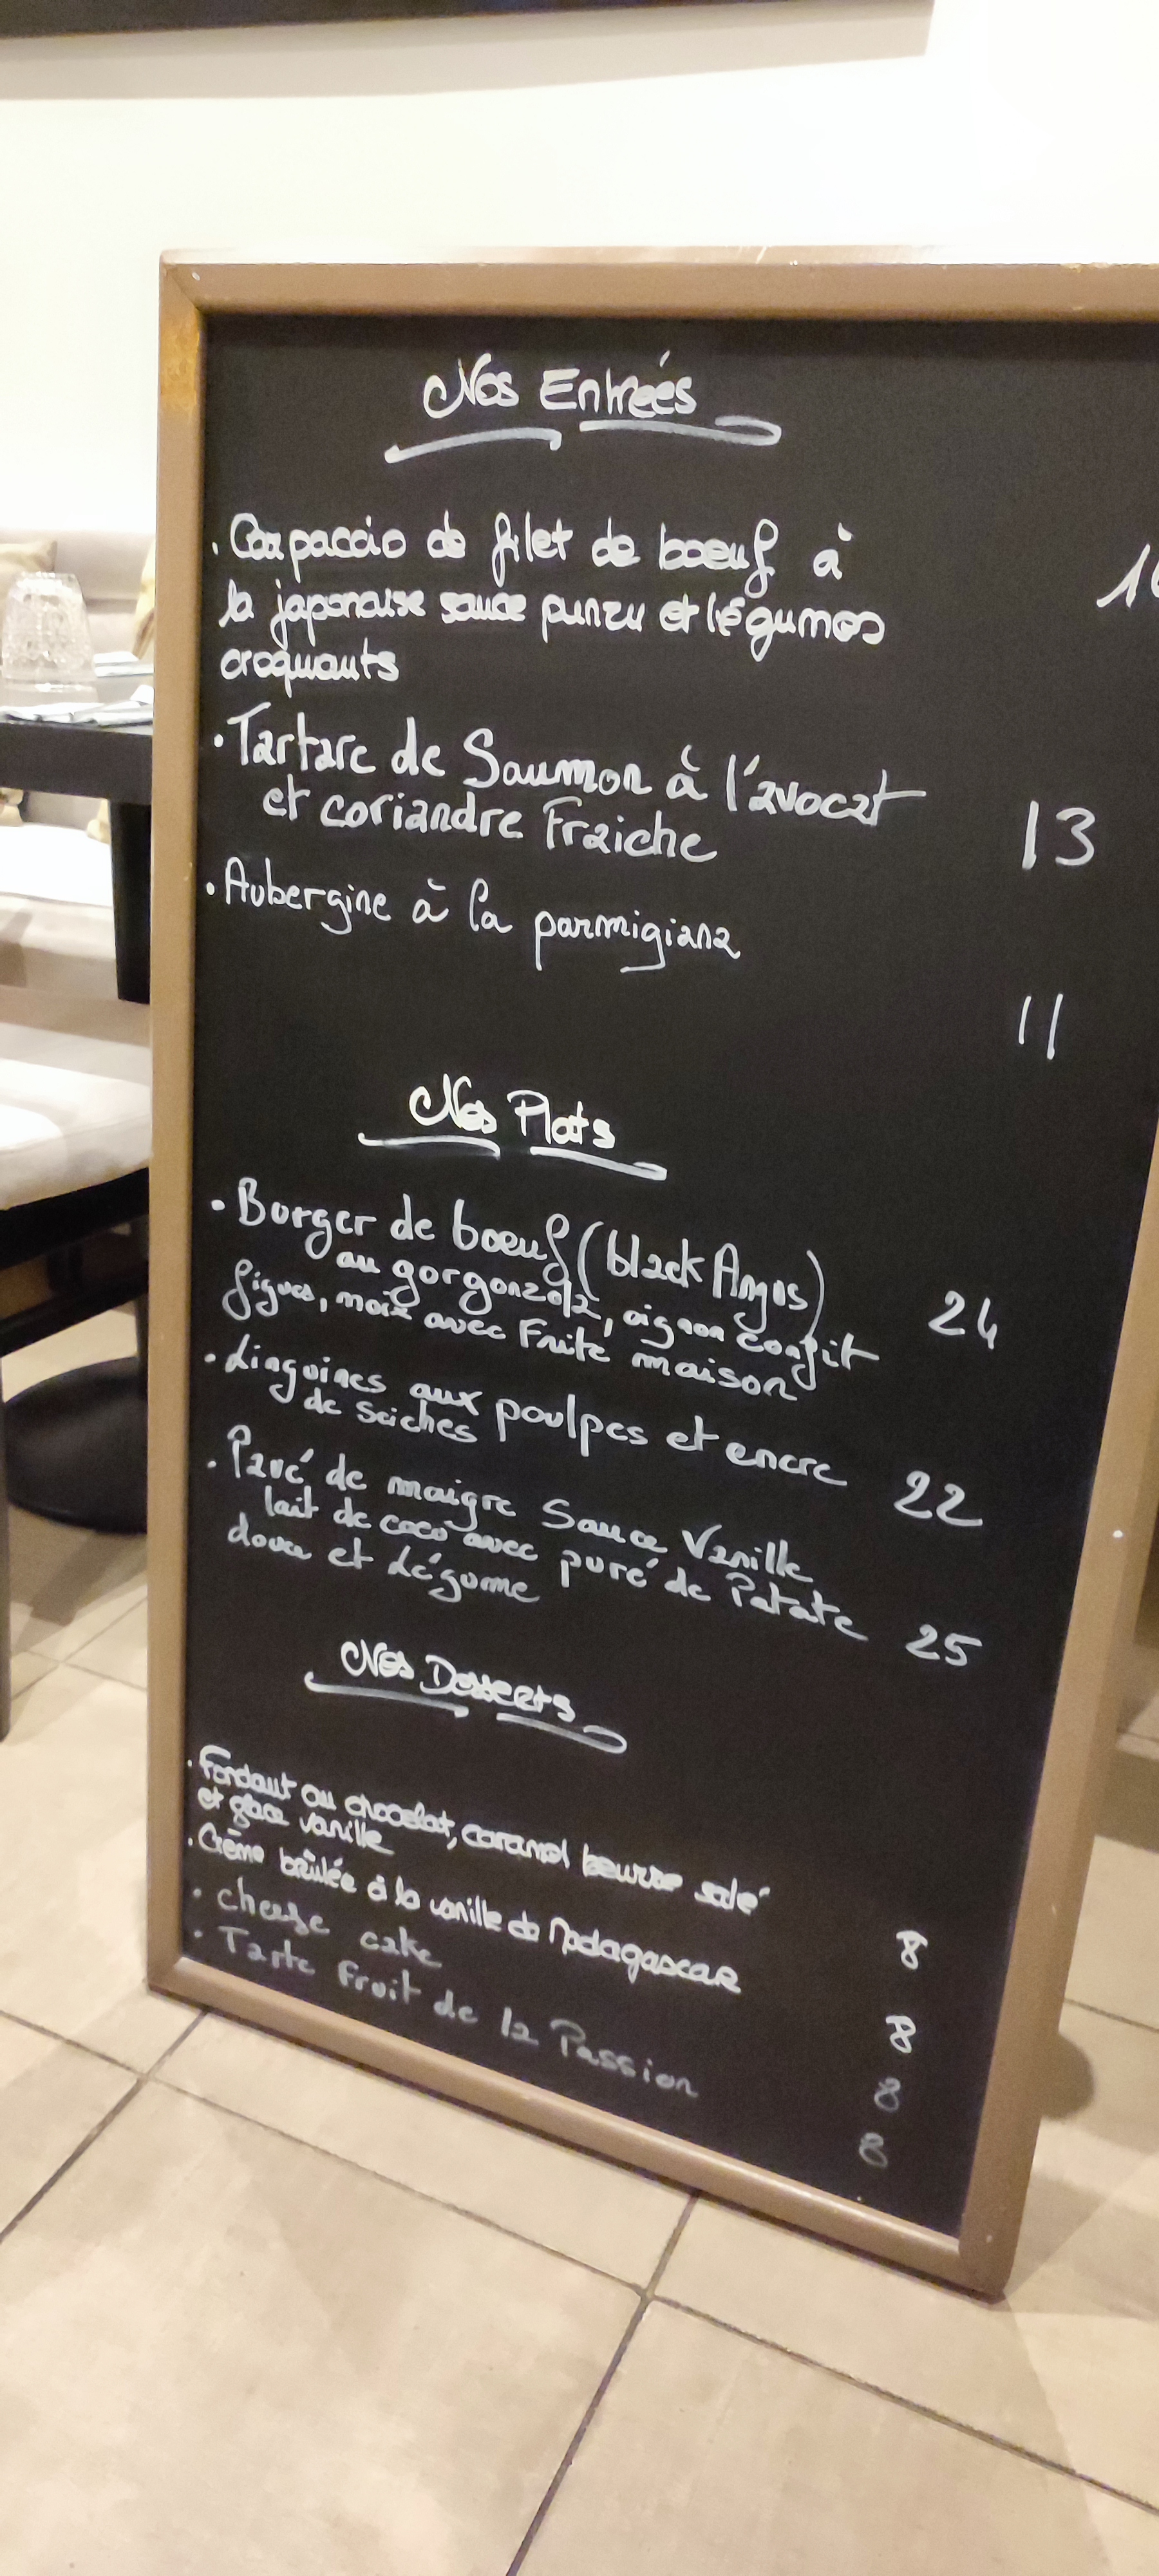 Nos Entreés
. Carpaccio de filet de boeuf à
la japonaise sauce punzu et légumes
croquants
. Tartare de Saumon à l'avocat
et coriandre Fraiche 13
. Aubergine à la parmigiana
11
Nos Plats
. Burger de boeuf (black Angus)
au gorgonzola, oignon confit 24
figues, noix avec Frite maison
. Linguines aux poulpes et encre
de Seiches 22
. Pavé de maigre Sauce Vanille
lait de coco avec puré de Patate
douce et Légume 25
Nos Desserts
. Fondant au chocolat, caramel beurre salé
et glace vanille 8
. Crème brûlée à la vanille de Madagascar 8
. cheese cake 8
. Tarte Fruit de la Passion 8